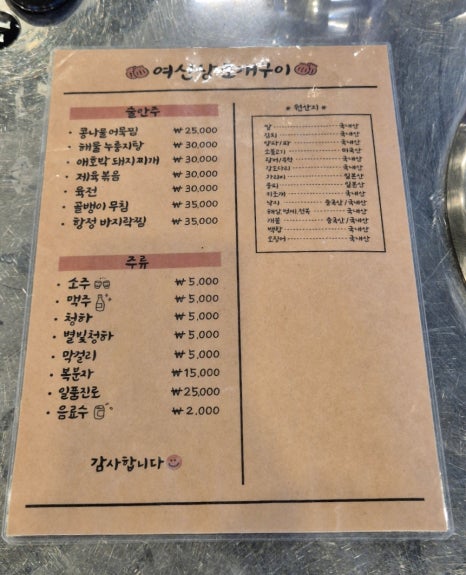 조개구이
술안주
• 콩나물어묵찜 ₩25,000
• 해물 누룽지탕 ₩30,000
• 애호박 돼지찌개 ₩30,000
• 제육볶음 ₩30,000
• 육전 ₩30,000
• 골뱅이 무침 ₩35,000
• 항정 바지락찜 ₩35,000
주류
• 소주 ₩5,000
• 맥주 ₩5,000
• 청하 ₩5,000
• 별빛청하 ₩5,000
• 막걸리 ₩5,000
• 복분자 ₩15,000
• 일품진로 ₩25,000
• 음료수 ₩2,000
감사합니다
* 원산지 *
쌀 국내산
김치 국내산
양파/파 국내산
소불고기 미국산
광어/우럭 국내산
감오다리 국내산
가리비 일본산
돌미 일본산
키조개 국내산
낙지 중국산/국내산
해삼, 멍게, 전복 국내산
개불 중국산/국내산
백합 국내산
오징어 국내산